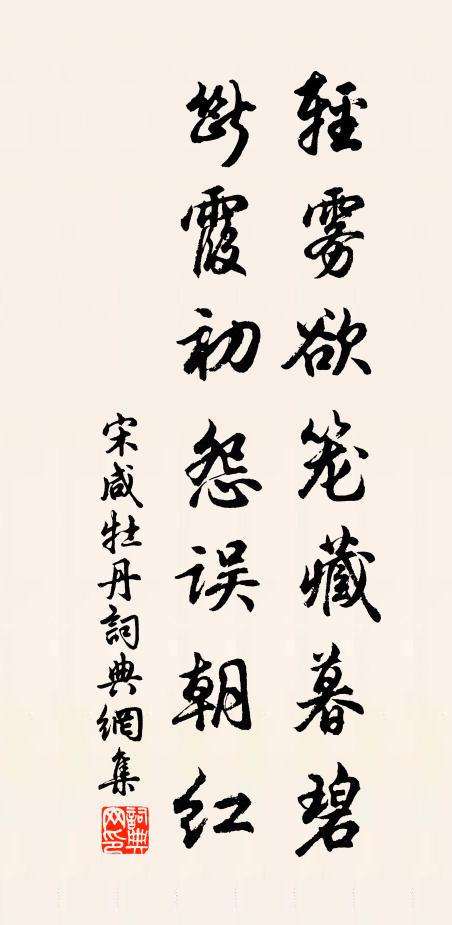 輕雾欲笼藏暮碧
断霞初怨误朝红
宋咸牡丹詞典網集
詞典网印